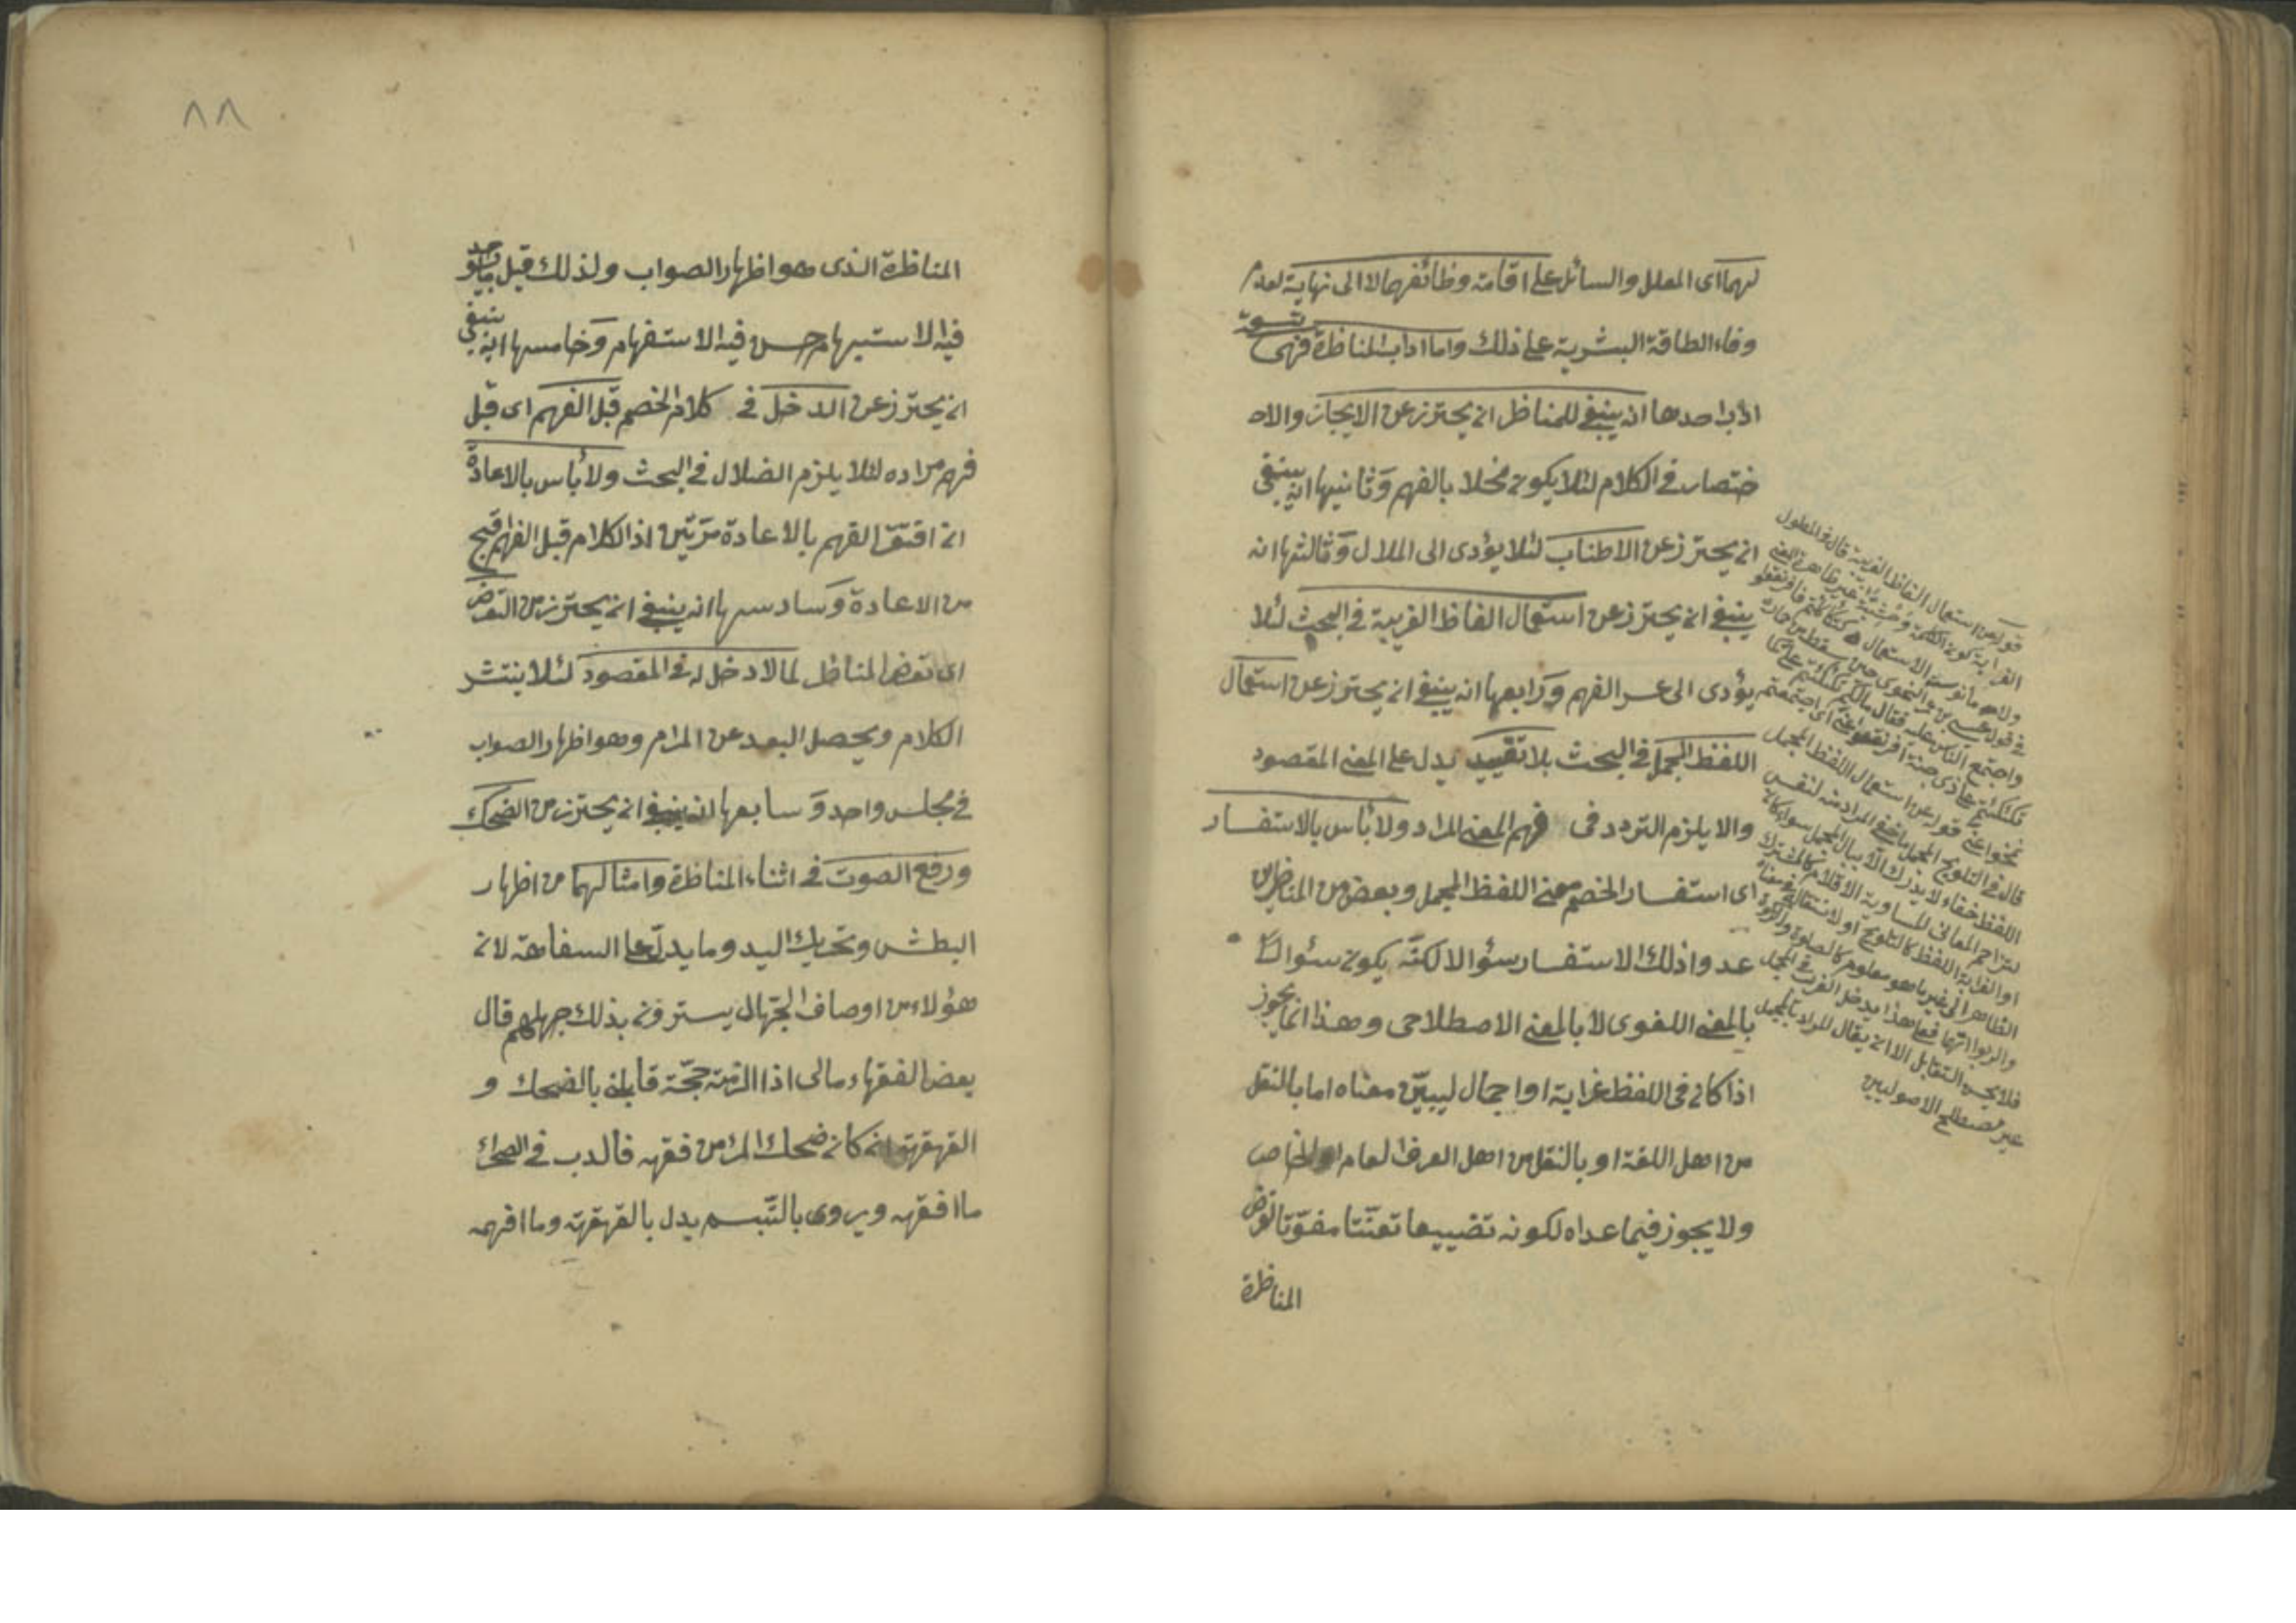 لهما اى المعلل والسائل على اقامة وظائفهما لا الى نهاية لعدم
وفاء الطاقة البشرية على ذلك واما اداب المناظرة فهى تسعة
اداب احدها انه ينبغى للمناظر ان يحترز عن الايجاز والاد
ختصار فى الكلام لئلا يكون مخلا بالفهم وثانيها انه ينبغى
ان يحترز عن الاطناب لئلا يؤدى الى الملال وثالثها انه
ينبغى ان يحترز عن استعمال الفاظ الغريبة فى البحث لئلا
يؤدى الى عسر الفهم ورابعها انه ينبغى ان يحترز عن استعمال
اللفظ المجمل فى البحث بلا تقييد يدل على المعنى المقصود
والا يلزم التردد فى فهم المعنى المراد ولا بأس بالاستفسار
اى استفسار الخصم معنى اللفظ المجمل وبعض من المناظرين
عدوا ذلك الاستفسار سؤالا لكنه يكون سئوالا
بالمعنى اللغوى لا بالمعنى الاصطلاحى وهذا انما يجوز
اذا كان فى اللفظ غرابة او اجمال ليبين معناه اما بالنقل
من اهل اللغة او بالنقل من اهل العرف العام او الخاص
ولا يجوز فيما عداه لكونه تضييعا تعنتا مفوتا لغرض
المناظرة
قوله عن استعمال الفاظ الغريبة قال فى المطول
الغرابة كون الكلمة وحشية غير ظاهرة المعنى
ولا مأنوسة الاستعمال
فى قول عيسى بن عمر النحوى حين سقط من حمار
واجتمع الناس عليه فقال مالكم تكأكأتم على
تكأكؤكم على ذى جنة افرنقعوا عنى اى اجتمعتم
تنحوا عنى قوله عن استعمال اللفظ المجمل
قال فى التلويح المجمل ما خفى المراد منه لنفس
اللفظ خفاء لا يدرك الا ببيان المجمل سواء كان
لتزاحم المعانى المتساوية الاقدام كالمشترك
او لغرابة اللفظ كالهلوع او لانتقاله من معناه
الظاهر الى غير ما هو معلوم كالصلوة والزكوة
والربوا انتهى فعلى هذا يدخل الغريب فى المجمل
فلا يحسن التقابل الا ان يقال المراد بالمجمل
غير مصطلح الاصوليين
٨٨
المناظرة الذى هو اظهار الصواب ولذلك قيل ما يوجد
فيه الاستبهام حسن فيه الاستفهام وخامسها انه ينبغى
ان يحترز عن الدخل فى كلام الخصم قبل الفهم اى قبل
فهم مراده لئلا يلزم الضلال فى البحث ولا بأس بالاعادة
ان افتقر الفهم بالاعادة مرتين اذ الكلام قبل الفهم اقبح
من الاعادة وسادسها انه ينبغى ان يحترز من التعرض
اى تعرض المناظر لما لا دخل له فى المقصود لئلا ينتشر
الكلام ويحصل البعد عن المرام وهو اظهار الصواب
فى مجلس واحد وسابعها انه ينبغى ان يحترز من الضحك
ورفع الصوت فى اثناء المناظرة وامثالهما من اظهار
البطش وتحريك اليد وما يدل على السفاهة لان
هؤلاء من اوصاف الجهال يسترون بذلك جهلهم قال
بعض الفقهاء مالى اذا الزمته حجة قابلنى بالضحك و
القهقهة ان كان ضحك المرء من فقهه فالدب فى الصحراء
ما افقهه ويروى بالتبسم بدل بالقهقهة وما افهمه